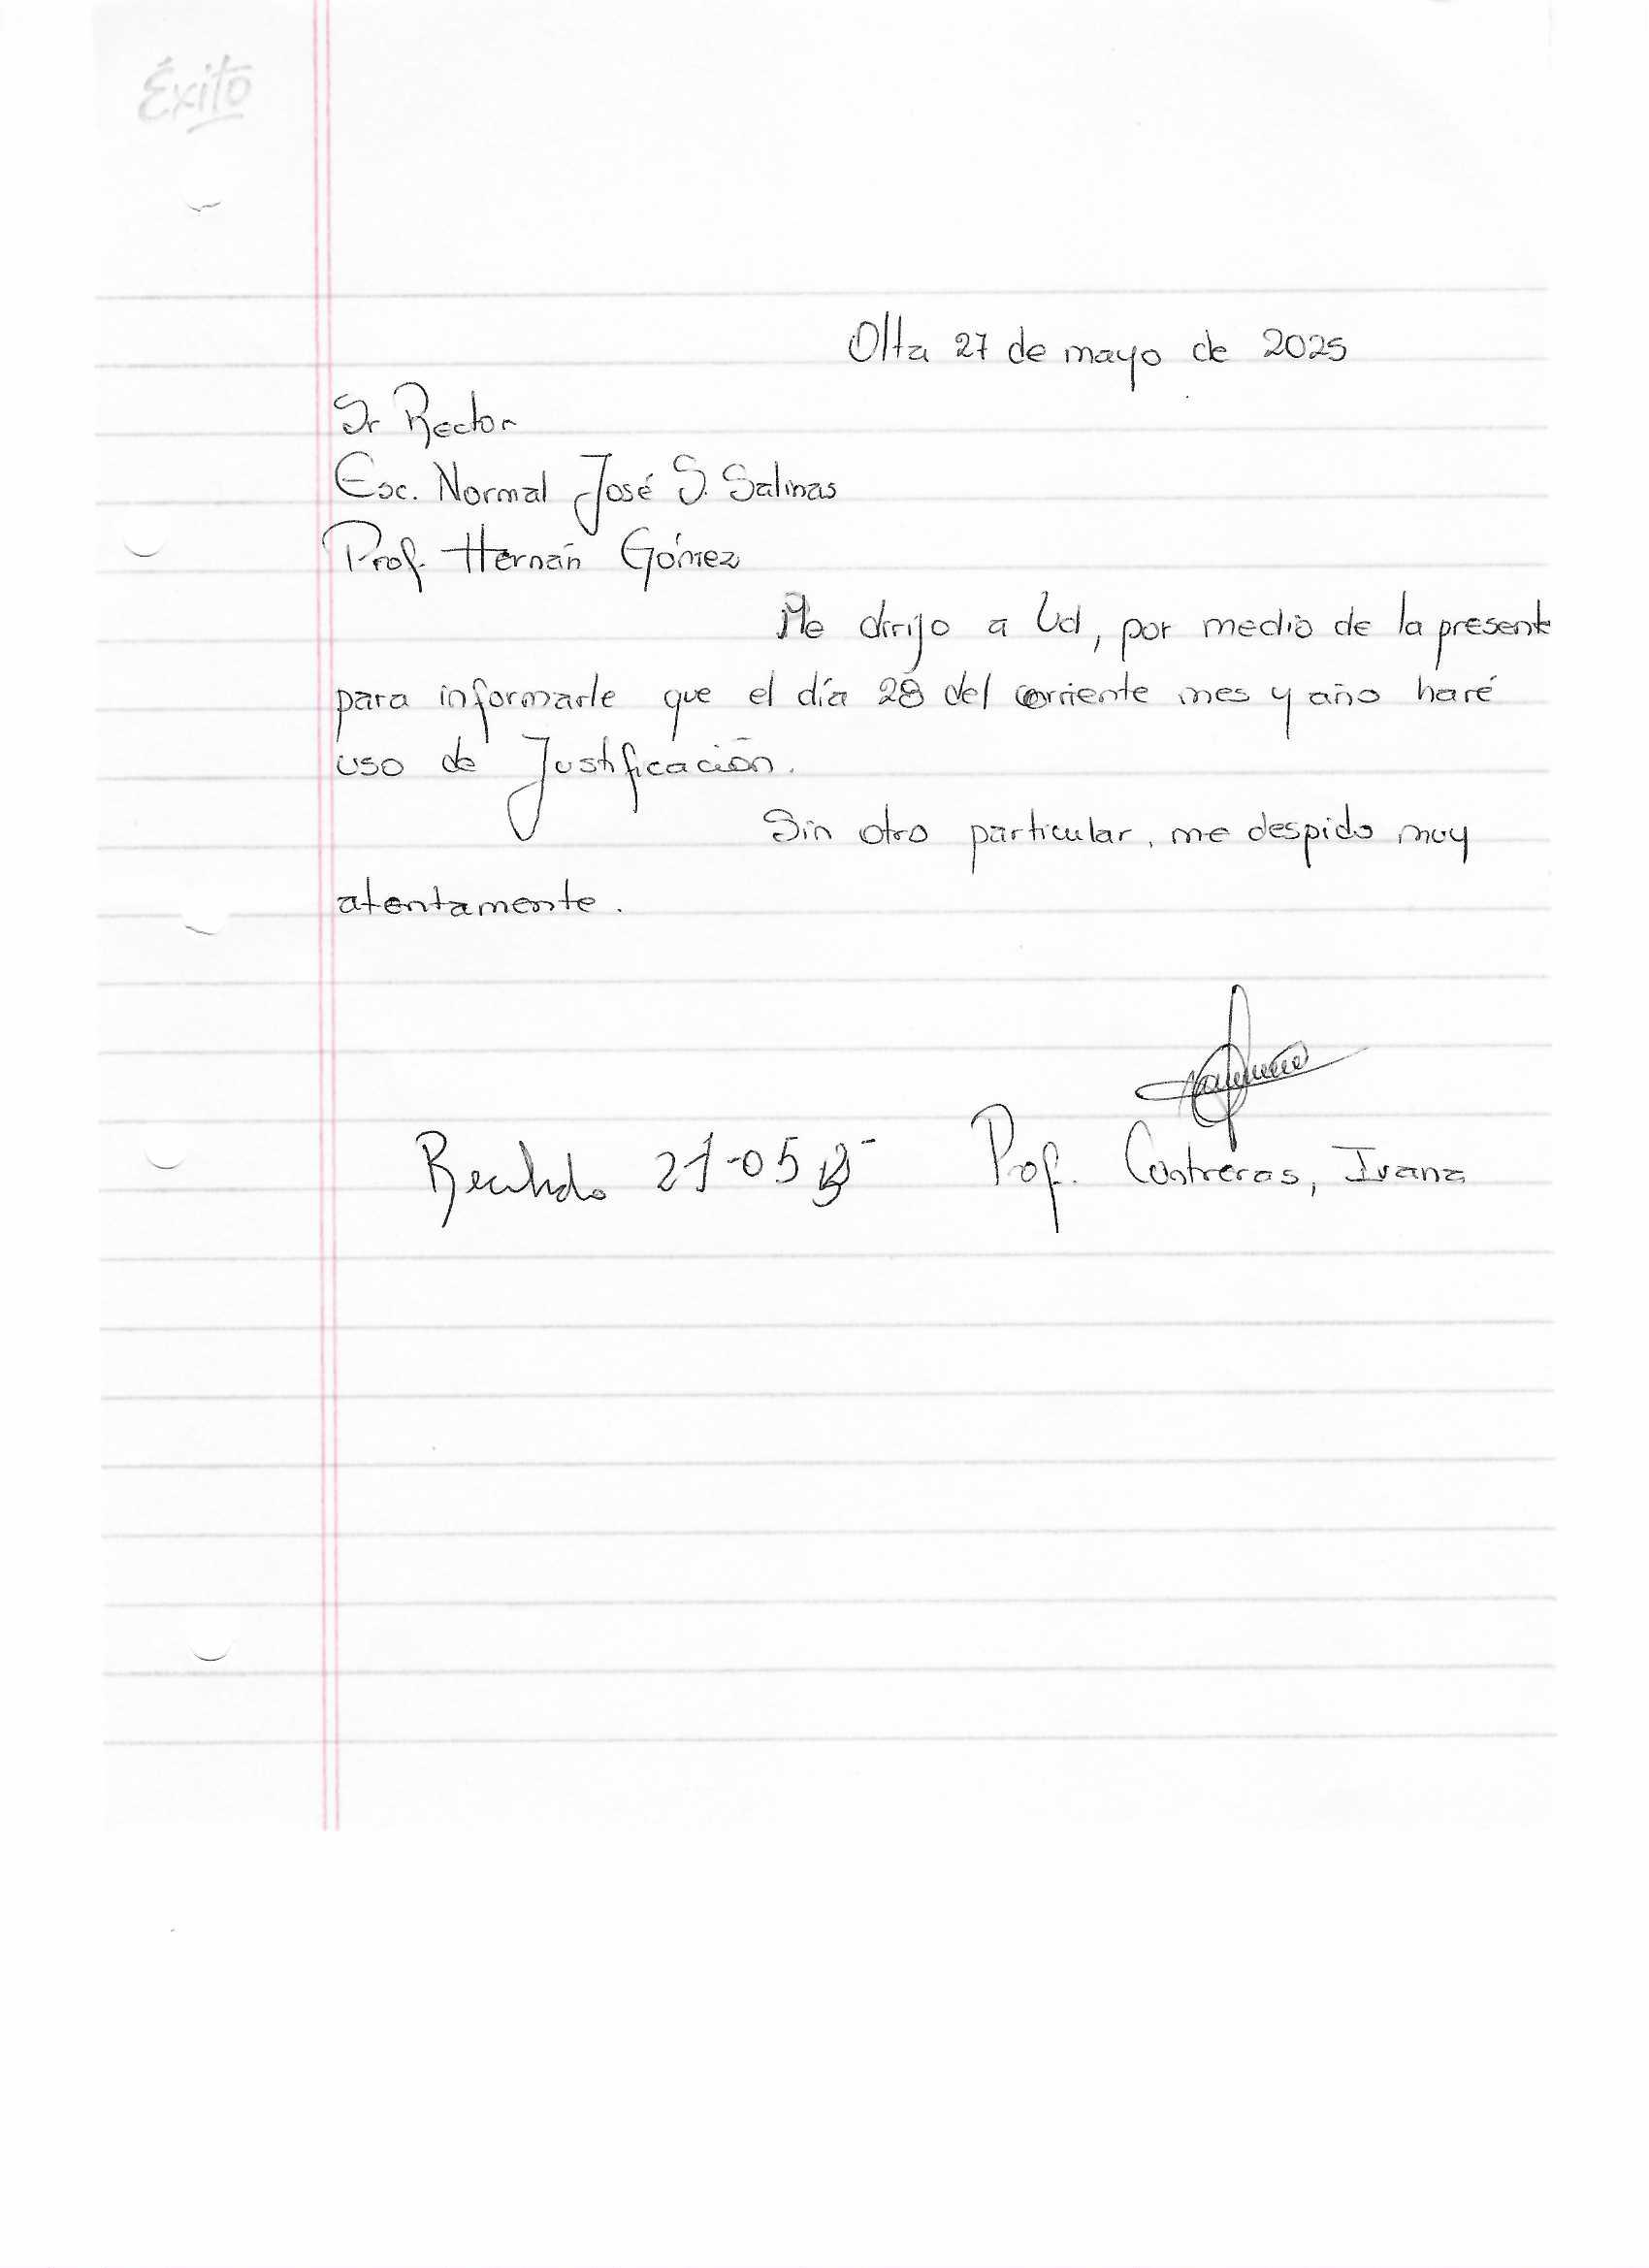 Éxito
Olta 27 de mayo de 2025
Sr Rector
Esc. Normal José S. Salinas
Prof. Hernán Gómez
Me dirijo a Ud, por medio de la presente
para informarle que el día 28 del corriente mes y año haré
uso de Justificación.
Sin otro particular, me despido muy
atentamente.
Recibido 27-05
Prof. Contreras, Ivana